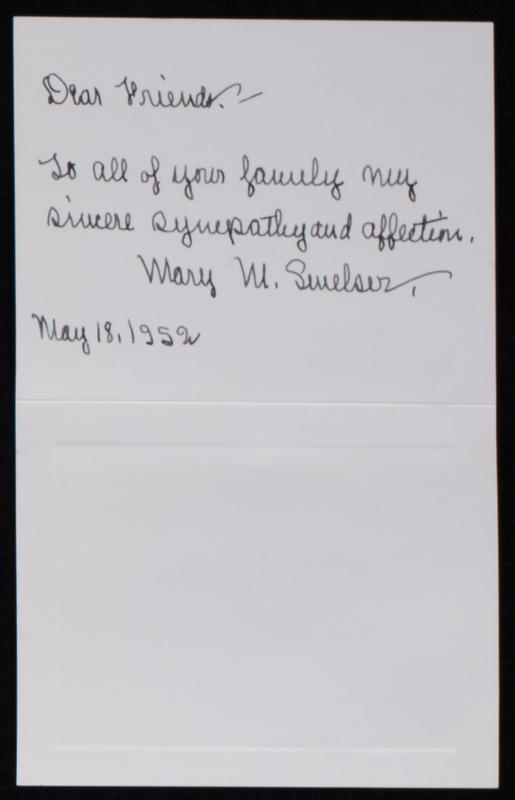 Dear Friends:—
To all of your family my
sincere sympathy and affection.
Mary M. Smelser.
May 18, 1952